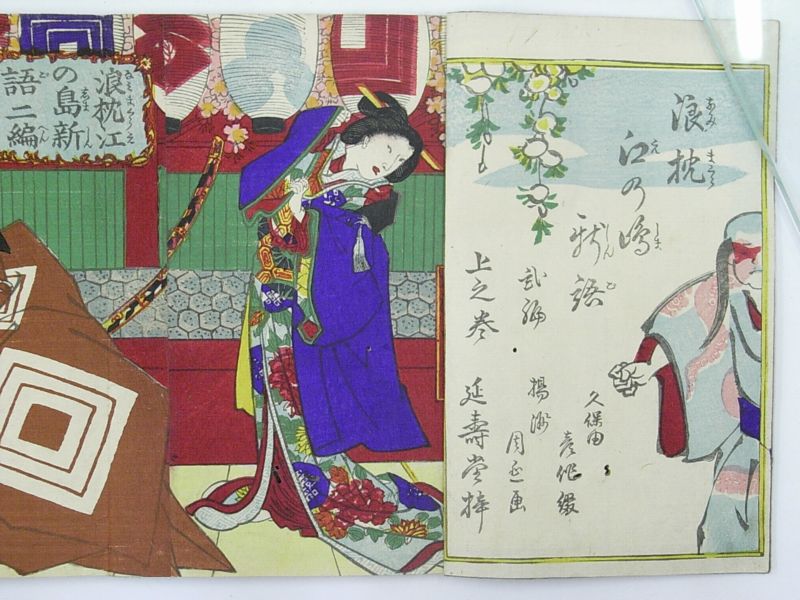 浪枕
江の嶋
新語
弐編
上之巻
久保田
彦作綴
揚洲
周延画
延壽堂梓
浪枕江
の島新
語二編